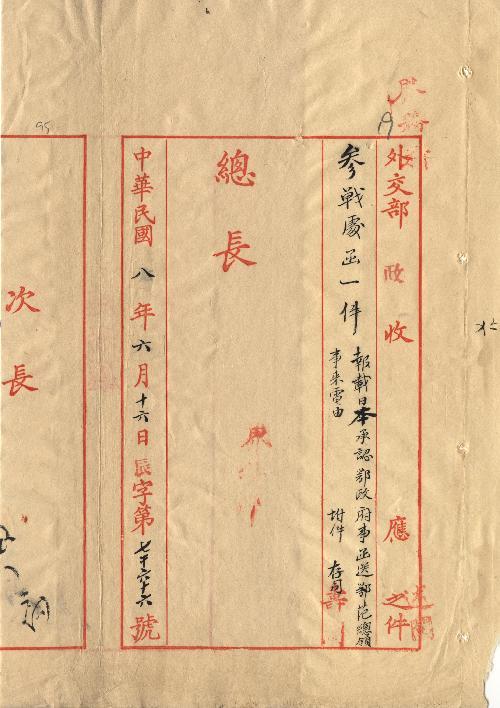 外交部 政 收 應 之件
參戰處函一件
報載日本承認鄂政府事函送鄂范總領
事來電由 附件 存司
總長
中華民國八年六月十六日辰字第七千六十六號
次長
95